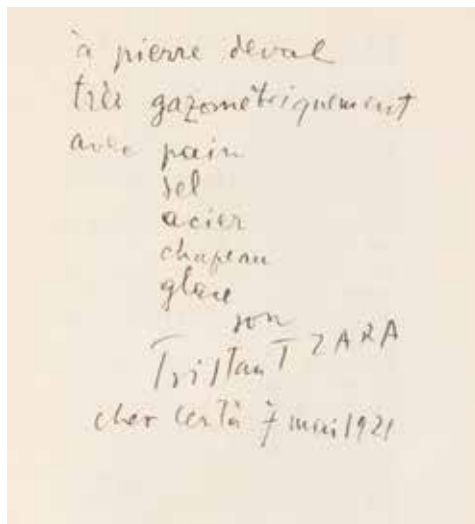 à pierre deval
très gazométriquement
avec pain
sel
acier
chapeau
glace
son
Tristan TZARA
chez Certà 7 mai 1921